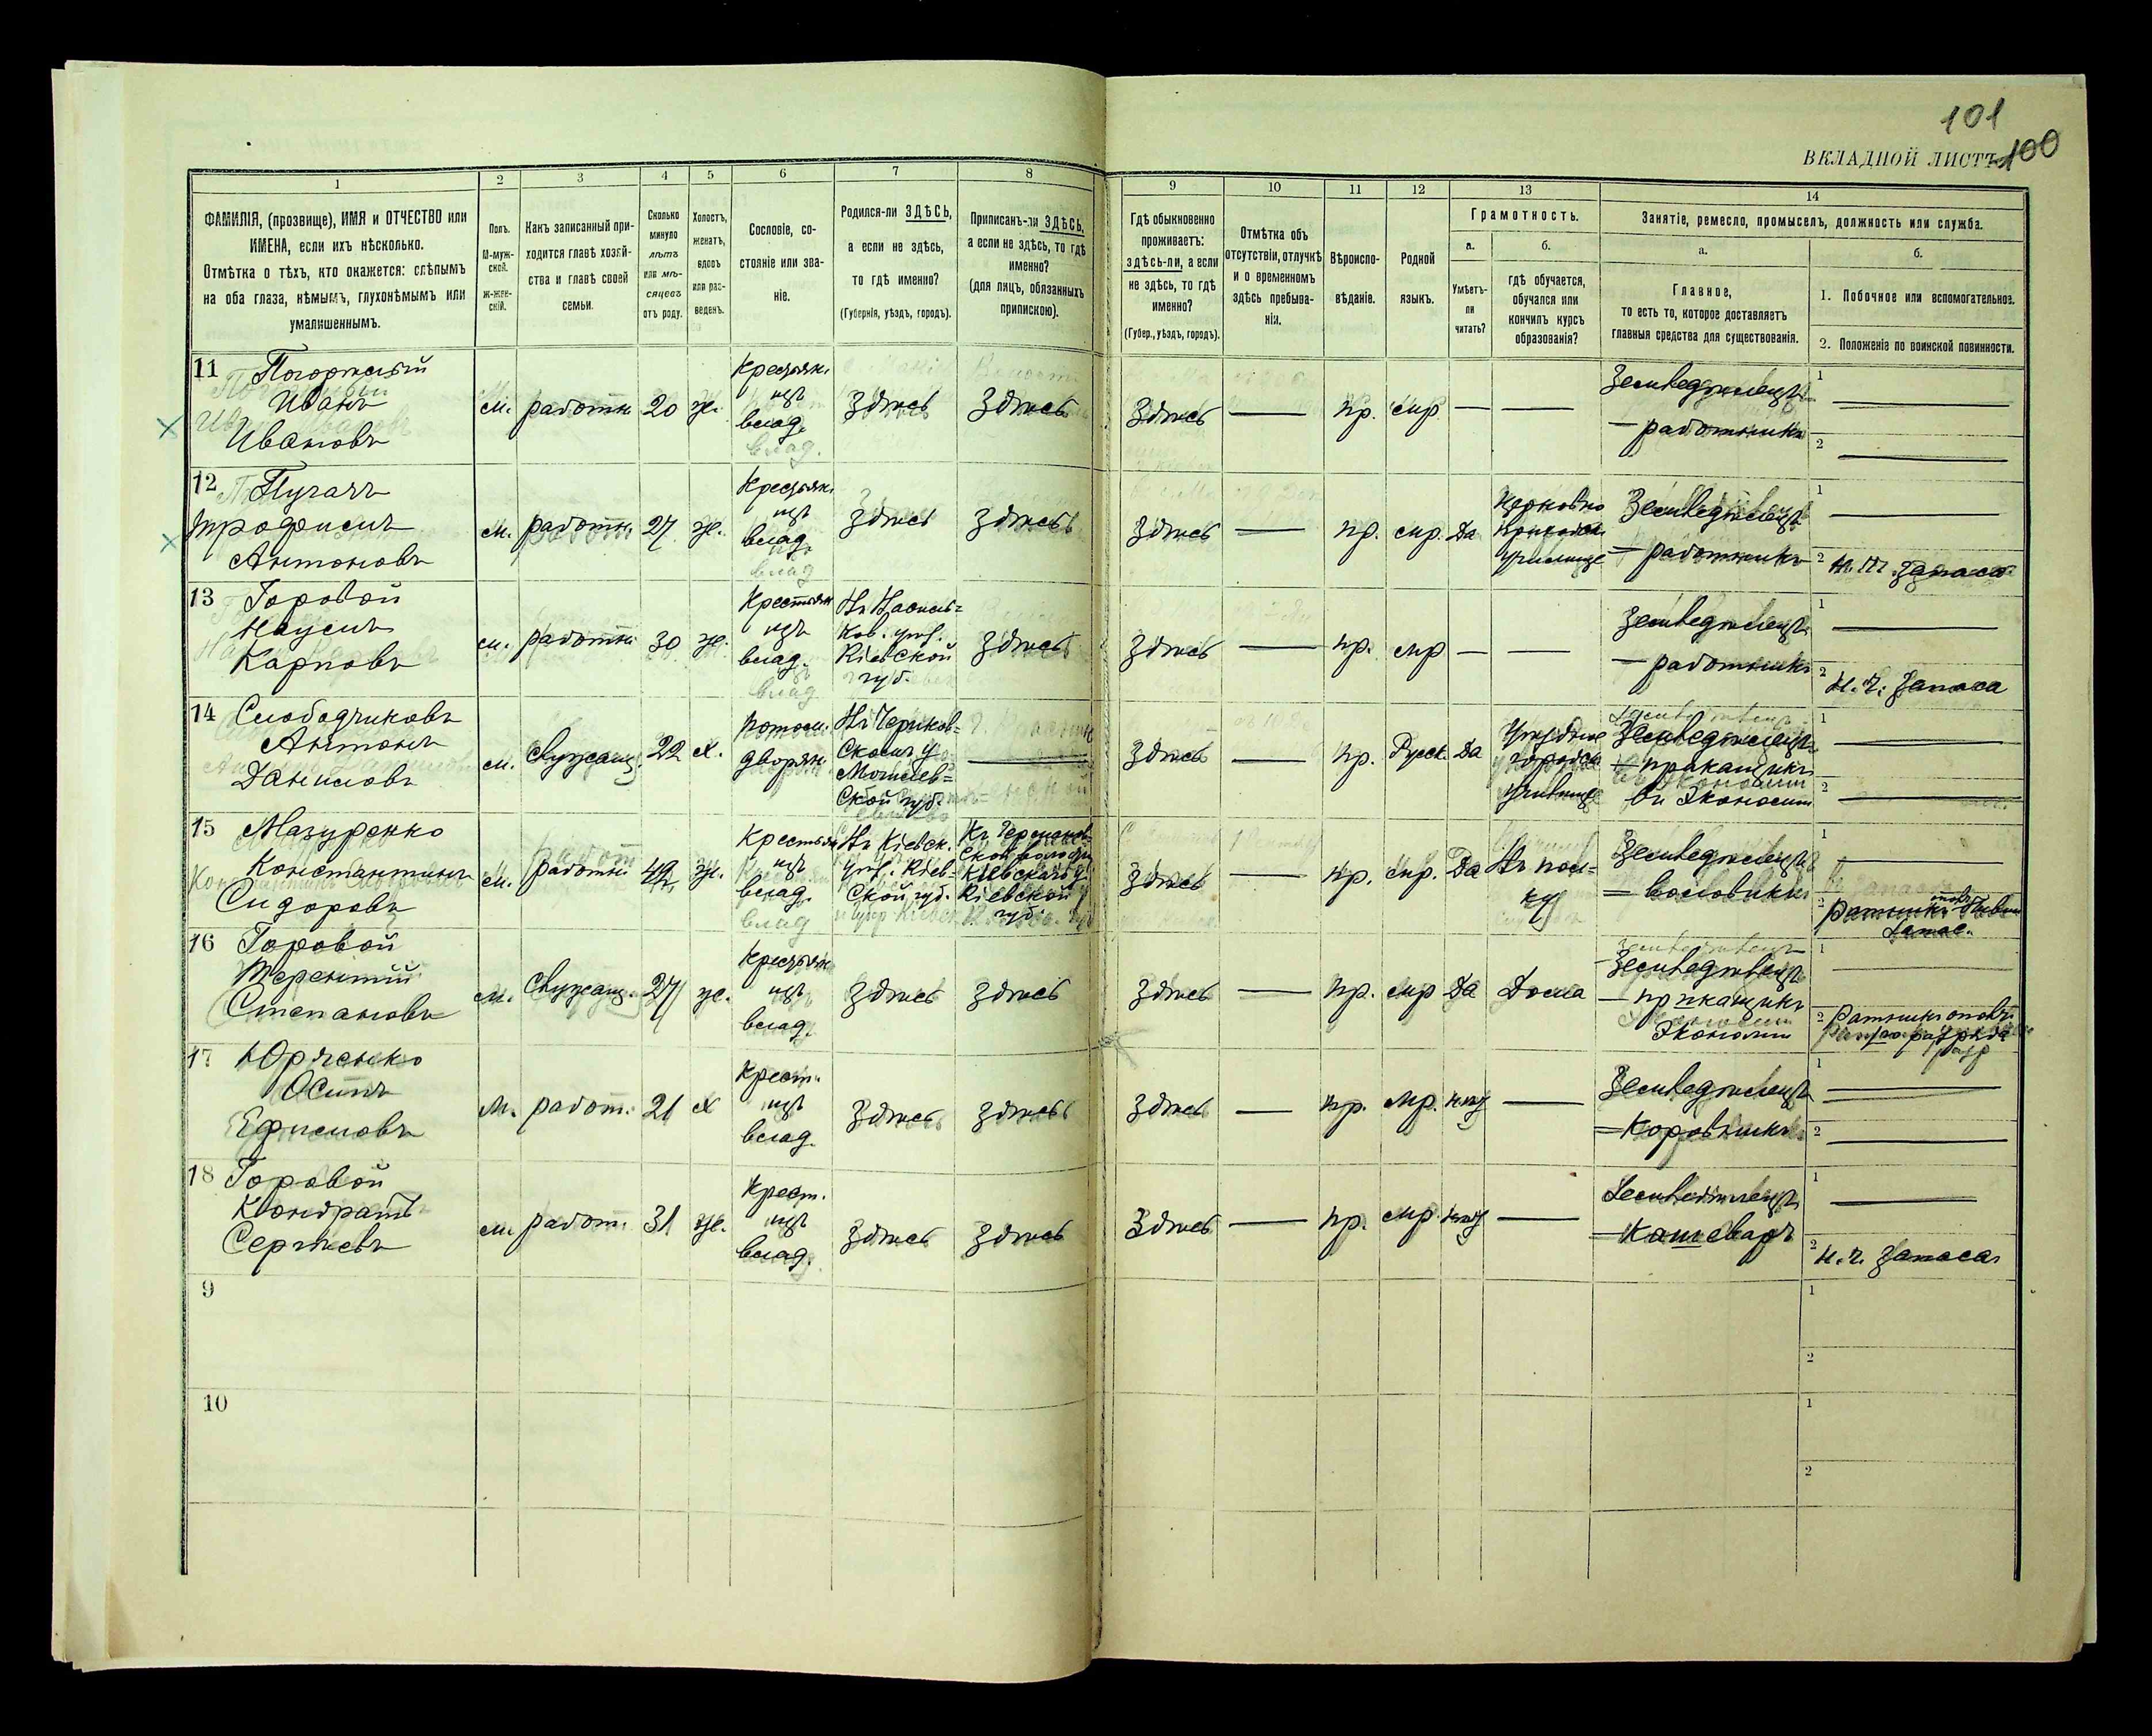 101
ВКЛАДНОЙ ЛИСТЪ 100
1
ФАМИЛІЯ, (прозвище), ИМЯ и ОТЧЕСТВО или
ИМЕНА, если ихъ нѣсколько.
Отмѣтка о тѣхъ, кто окажется: слѣпымъ
на оба глаза, нѣмымъ, глухонѣмымъ или
умалишеннымъ.
2
Полъ.
М-муж-
ской.
Ж-жен-
скій.
3
Какъ записанный при-
ходится главѣ хозяй-
ства и главѣ своей
семьи.
4
Сколько
минуло
лѣтъ
или мѣ-
сяцевъ
отъ роду.
5
Холостъ,
женатъ,
вдовъ
или раз-
веденъ.
6
Сословіе, со-
стояніе или зва-
ніе.
7
Родился-ли ЗДѢСЬ,
а если не здѣсь,
то гдѣ именно?
(Губернія, уѣздъ, городъ).
8
Приписанъ-ли ЗДѢСЬ,
а если не здѣсь, то гдѣ
именно?
(для лицъ, обязанныхъ
припискою).
9
Гдѣ обыкновенно
проживаетъ:
здѣсь-ли, а если
не здѣсь, то гдѣ
именно?
(Губер., уѣздъ, городъ).
10
Отмѣтка объ
отсутствіи, отлучкѣ
и о временномъ
здѣсь пребыва-
ніи.
11
Вѣроиспо-
вѣданіе.
12
Родной
языкъ.
13
Грамотность.
а.
Умѣетъ-
ли
читать?
б.
гдѣ обучается,
обучался или
кончилъ курсъ
образованія?
14
Занятіе, ремесло, промыселъ, должность или служба.
а.
Главное,
то есть то, которое доставляетъ
главныя средства для существованія.
б.
1. Побочное или вспомогательное.
2. Положеніе по воинской повинности.
11
Иванъ
Ивановъ
м. работн. 20 ж.
Крестьян.
изъ
влад.
Здѣсь Здѣсь Здѣсь — пр. мр. — —
Земледѣлецъ
— работникъ
1
2
12 Пугачъ
Трофимъ
Антоновъ
м. работн. 27 ж.
Крестьян.
изъ
влад.
Здѣсь Здѣсь Здѣсь — пр. мр. Да
Церковно
приходск.
училище
Земледѣлецъ
— работникъ
1
2
13 Горовой
Наумъ
Карповъ
м. работн. 30 ж.
Крестьян
изъ
влад.
Въ Василь=
ков. уѣз.
Кіевской
губ.
Здѣсь Здѣсь — пр. мр — —
Земледѣлецъ
— работникъ
1
2 н. ч. запаса
14 Слободчиковъ
Антонъ
Даниловъ
м. Служащ. 22 х.
Потом.
дворян.
Въ Чериков=
скомъ у
Могилев=
ской губ.
— Здѣсь — пр. Русск. Да
Уѣздное
городск
училище
Земледѣлецъ
— прикащикъ
въ Экономіи
1
2
15 Мазуренко
Константинъ
Сидоровъ
м. работн. 42 ж.
Крестьян
изъ
влад.
Въ Кіевск.
уѣз. Кіев=
ской губ.
Кіевскаго у
Кіевской
губ.
Здѣсь — пр. мр. Да
Въ пол=
ку
Земледѣлецъ
— воловикъ
1
2
16 Горовой
Терентій
Степановъ
м. Служащ. 27 ж.
Крестьян
изъ
влад.
Здѣсь Здѣсь Здѣсь — пр. мр Да Дома
Земледѣлецъ
— прикащикъ
Экономіи
1
2 Ратникъ ополч.
разряда
17 Юрченко
Осипъ
Ефимовъ
м. работ. 21 х
Крест.
изъ
влад.
Здѣсь Здѣсь Здѣсь — пр. мр. —
Земледѣлецъ
— Коровникъ
1
2
18 Горовой
Кондратъ
Сергѣевъ
м. работ. 31 ж.
Крест.
изъ
влад.
Здѣсь Здѣсь Здѣсь — пр. мр. —
Земледѣлецъ
— Кашеваръ
1
2 н. ч. запаса
9
1
2
10
1
2